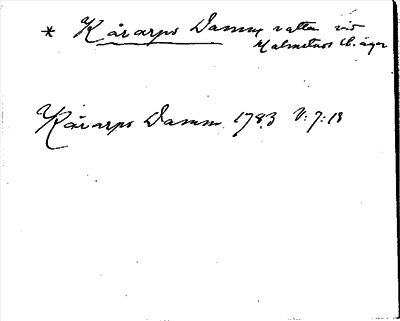 * Kårarps Damm, vatten vid
Malmstens Ä. ägor
Kårarps Damm 1783 V:7:18